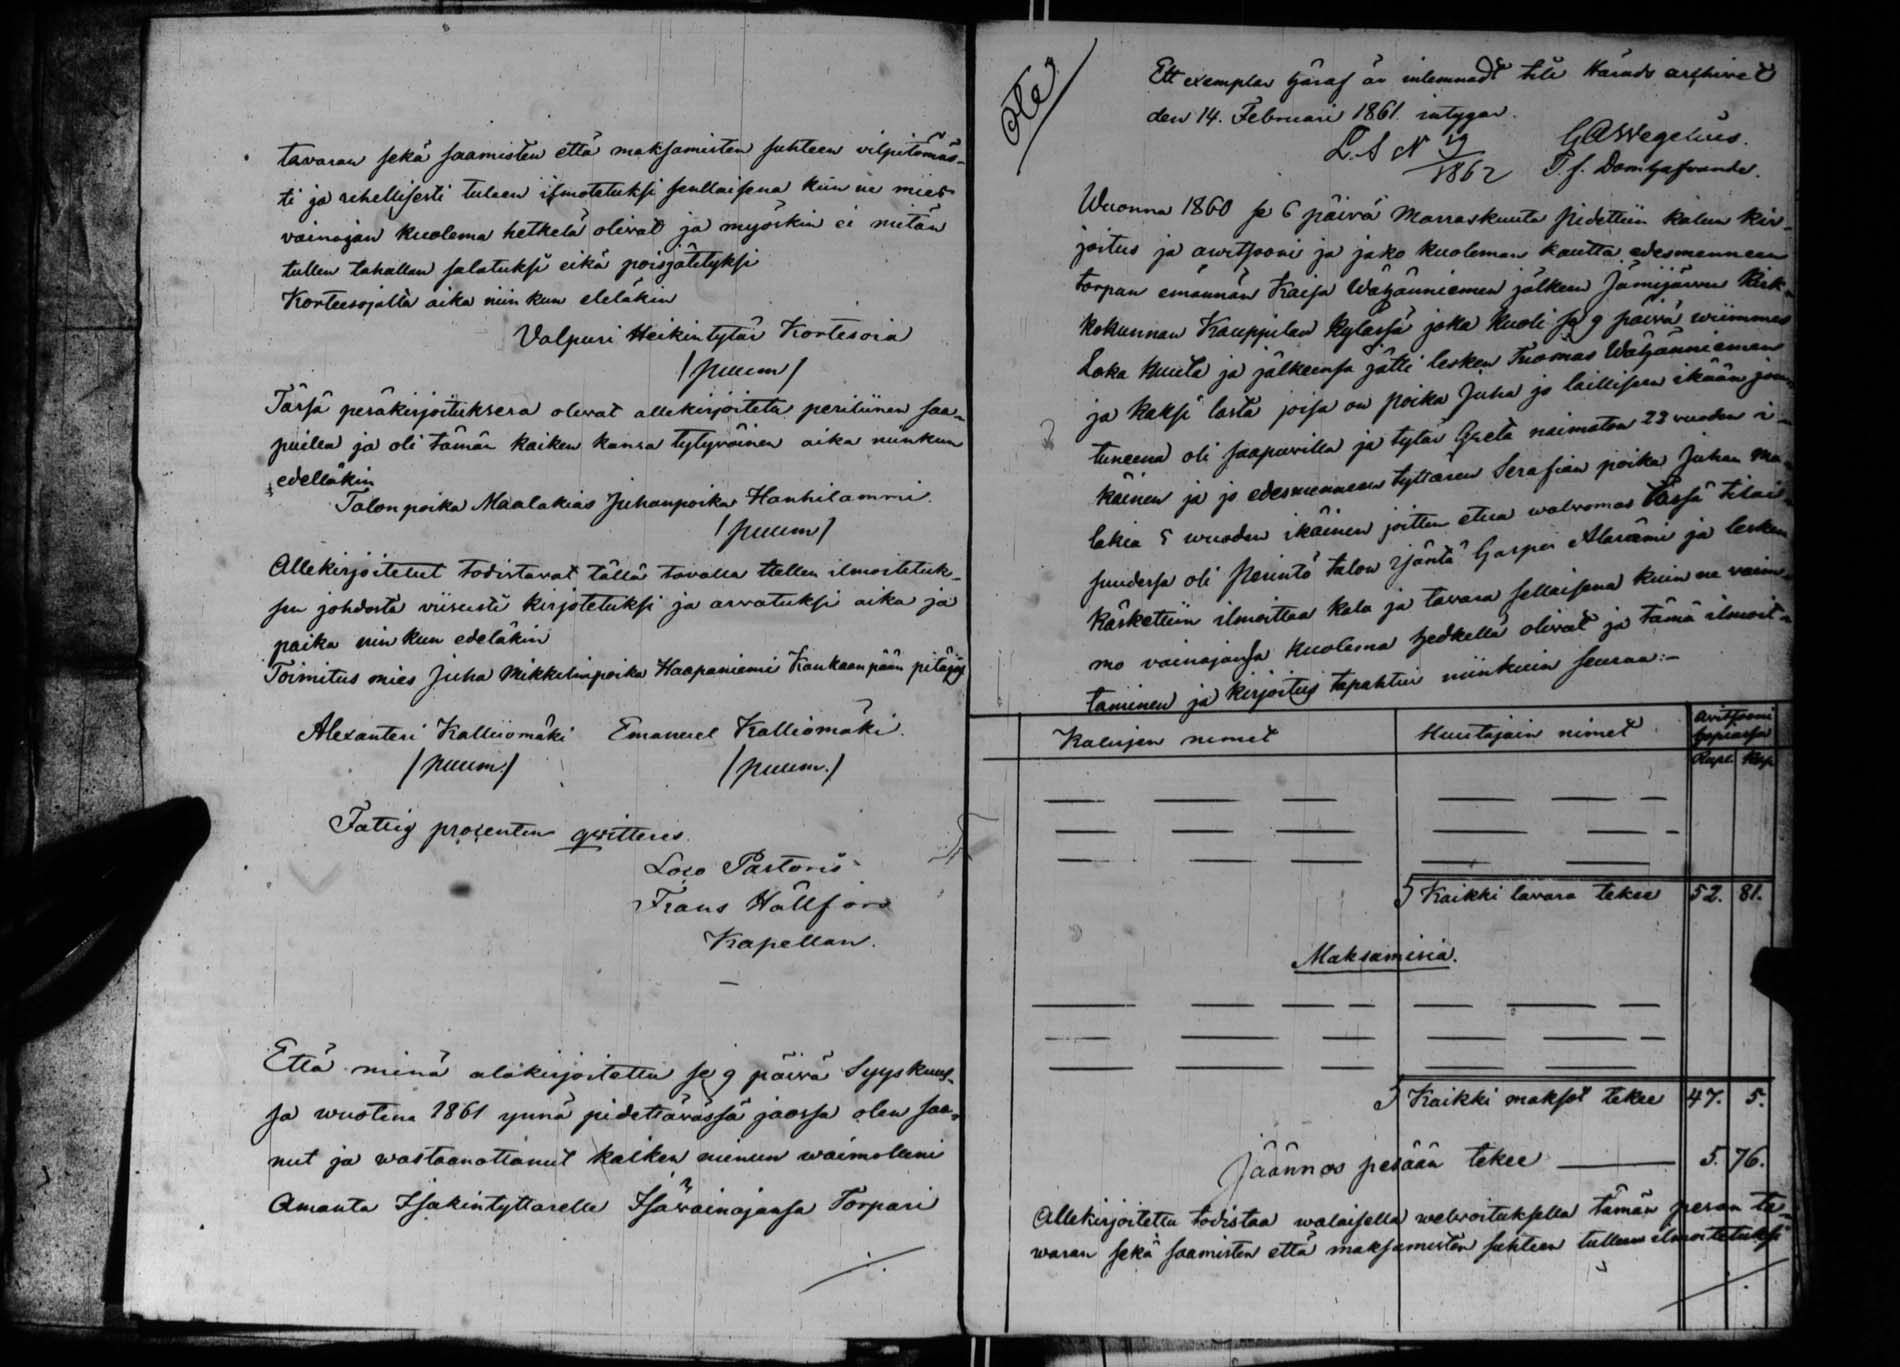 tavaran sekä saamisten että maksamisten suhteen vilpitömäs-
ti ja rehellisesti tuleen ilmotetuksi senllaisena kun ne mies
vainajan kuolema hetkelä olivat ja myöskin ei mitän
tullen tahallan salatuksi eikä poisjätetyksi
Korteesojalla aika niin kun eteläkin
Valpuri Heikintytär Kortesoia
/puum/
Täsä peräkirjoituksera olevat allekirjoitetu perilinen saa-
puilla ja oli tämän kaiken kansa tytyväinen aika niinkun
edelläkin
Talonpoika Maalakias Juhanpoika Hanhilammi.
/puum/
Allekirjoitetut todistavat tällä tavalla tullen ilmoitetuk-
sen johdosta viisusti kirjotetuksi ja arvatuksi aika ja
paika nin kun edeläkin
Toimitus mies Juha Mikkelinpoika Haapaniemi Kankaanpään pitäjäs
Alexanteri Kalliomäki Emanuel Kalliomäki.
/puum./ /puum./
Fattig procenten qvitteras
Loco Pastoris
Frans Hällfors
Kapellan.
Että minä alakirjoitettu se 9 päivä Syyskuus-
sa wuotena 1861 ynnä pidettävässä jaossa olen saa-
nut ja wastaanottanut kaiken minun waimolleni
Amanta Isakintyttarelle Isävainajansa Torpari
./.
Ett exemplar häraf är inlemnadt till Härads archivet
den 14. Februari 1861. intygar.
G A Wegelius.
L. A N 9/1862 T. f. Domhafvande.
Wuonna 1860 se 6 päivä Marraskuuta pidettiin kalun kir-
joitus ja awitsooni ja jako kuoleman kautta edesmenneen
torpan emännän Kaisa Wähänniemen jälkeen Jämijärven Kirk-
kokunnan Kauppilan kylässä joka kuoli se 9 päivä wiimmes
Loka kuuta ja jälkeensä jätti lesken Tuomas Wähänniemen
ja kaksi lasta joisa on poika Juha jo laillisen ikään jou-
tuneena oli saapuvilla ja tytär Greta naimaton 23 vuoden i-
käinen ja jo edesmenneen tyttären Serafian poika Juhan Ma-
lakia 5 wuoden ikäinen joitten etua walvomas tässä tilai-
suudessa oli Perintö talon isäntä Gasper Alasämi ja lesken
käskettiin ilmoittaa kalu ja tavara sellaisena kuin ne vaim-
mo vainajansa kuolema hedkellä olivat ja tämä ilmoit-
taminen ja kirjoitus tapahtui niinkuin seuraa:-
Kalujen nimet Huutajain nimet Avitsooni hopiassa
Rupl. Kop.
Kaikki tavara tekee 52. 81.
Maksamisia.
Kaikki maksot tekee 47. 5.
Jäännos pesään tekee 5. 76.
Allekirjoitettu todistaa walaisella welvoituksella tämän pesan ta-
waran sekä saamisten että maksamisten suhteen tulleen ilmoitetuksi
./.